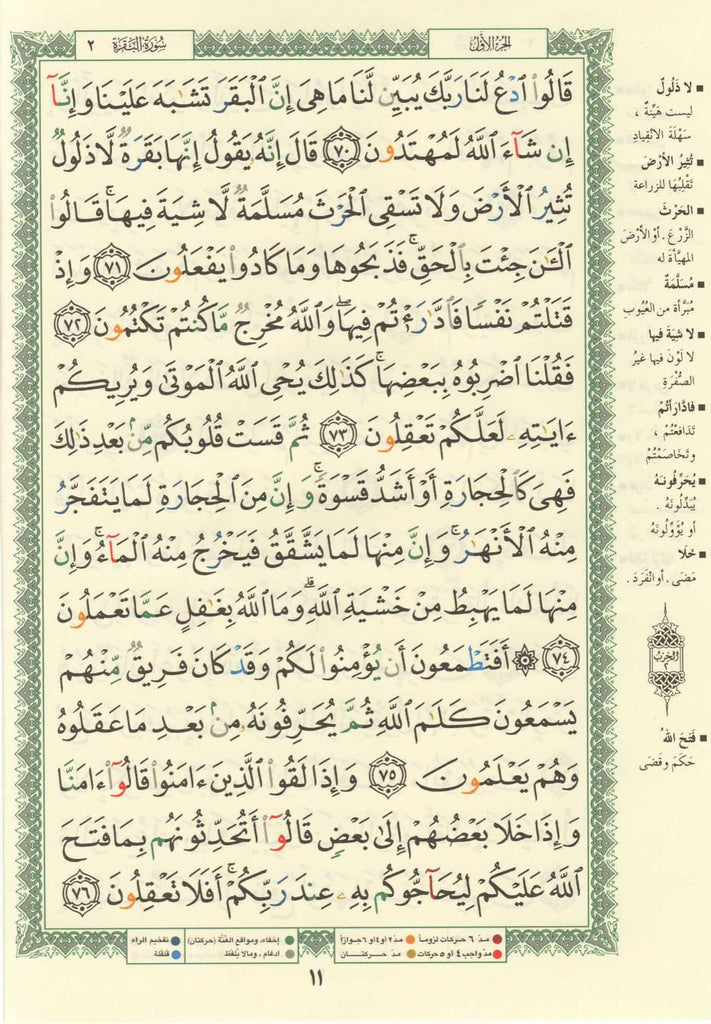 سُورَةُ البَقَرَة ٢
الجُزءُ الأوّل
قَالُوا۟ ٱدْعُ لَنَا رَبَّكَ يُبَيِّن لَّنَا مَا هِىَ إِنَّ ٱلْبَقَرَ تَشَٰبَهَ عَلَيْنَا وَإِنَّآ
إِن شَآءَ ٱللَّهُ لَمُهْتَدُونَ ٧٠ قَالَ إِنَّهُۥ يَقُولُ إِنَّهَا بَقَرَةٌ لَّا ذَلُولٌ
تُثِيرُ ٱلْأَرْضَ وَلَا تَسْقِى ٱلْحَرْثَ مُسَلَّمَةٌ لَّا شِيَةَ فِيهَا ۚ قَالُوا۟
ٱلْـَٰٔنَ جِئْتَ بِٱلْحَقِّ ۚ فَذَبَحُوهَا وَمَا كَادُوا۟ يَفْعَلُونَ ٧١ وَإِذْ
قَتَلْتُمْ نَفْسًا فَٱدَّٰرَْٰٔتُمْ فِيهَا ۖ وَٱللَّهُ مُخْرِجٌ مَّا كُنتُمْ تَكْتُمُونَ ٧٢
فَقُلْنَا ٱضْرِبُوهُ بِبَعْضِهَا ۚ كَذَٰلِكَ يُحْىِ ٱللَّهُ ٱلْمَوْتَىٰ وَيُرِيكُمْ
ءَايَٰتِهِۦ لَعَلَّكُمْ تَعْقِلُونَ ٧٣ ثُمَّ قَسَتْ قُلُوبُكُم مِّنۢ بَعْدِ ذَٰلِكَ
فَهِىَ كَٱلْحِجَارَةِ أَوْ أَشَدُّ قَسْوَةً ۚ وَإِنَّ مِنَ ٱلْحِجَارَةِ لَمَا يَتَفَجَّرُ
مِنْهُ ٱلْأَنْهَٰرُ ۚ وَإِنَّ مِنْهَا لَمَا يَشَّقَّقُ فَيَخْرُجُ مِنْهُ ٱلْمَآءُ ۚ وَإِنَّ
مِنْهَا لَمَا يَهْبِطُ مِنْ خَشْيَةِ ٱللَّهِ ۗ وَمَا ٱللَّهُ بِغَٰفِلٍ عَمَّا تَعْمَلُونَ
٧٤ ۞ أَفَتَطْمَعُونَ أَن يُؤْمِنُوا۟ لَكُمْ وَقَدْ كَانَ فَرِيقٌ مِّنْهُمْ
يَسْمَعُونَ كَلَٰمَ ٱللَّهِ ثُمَّ يُحَرِّفُونَهُۥ مِنۢ بَعْدِ مَا عَقَلُوهُ
وَهُمْ يَعْلَمُونَ ٧٥ وَإِذَا لَقُوا۟ ٱلَّذِينَ ءَامَنُوا۟ قَالُوٓا۟ ءَامَنَّا
وَإِذَا خَلَا بَعْضُهُمْ إِلَىٰ بَعْضٍ قَالُوٓا۟ أَتُحَدِّثُونَهُم بِمَا فَتَحَ
ٱللَّهُ عَلَيْكُمْ لِيُحَآجُّوكُم بِهِۦ عِندَ رَبِّكُمْ ۚ أَفَلَا تَعْقِلُونَ ٧٦
■ لا ذَلُولٌ
ليست هَيِّنَةً ،
سَهْلَةَ الانْقِيادِ
■ تُثِيرُ الأَرْضَ
تَقْلِبُهَا للزراعة
■ الحَرْثَ
الزَّرْعَ . أو الأرْضَ
المهيَّأةَ له
■ مُسَلَّمَةٌ
مُبَرَّأة من العُيوبِ
■ لا شِيَةَ فيها
لا لَوْنَ فيها غيرُ
الصُّفْرَةِ
■ فادّارَأتُمْ
تَدَافَعْتُمْ ،
وتَخَاصَمْتُمْ
■ يُحَرِّفُونَهُ
يُبَدِّلُونَهُ .
أو يُؤَوِّلُونَهُ
■ خَلَا
مَضَى . أو انْفَرَدَ .
الحِزْبُ
٢
■ فَتَحَ اللهُ
حَكَمَ وقَضَى
مدّ ٦ حركات لزوماً
مدّ ٢ او ٤ او ٦ جوازاً
إخفاء، ومواقع الغُنَّة (حركتان)
تفخيم الراء
مدّ واجب ٤ او ٥ حركات
مدّ حركتان
ادغام ، ومالا يُلفَظ
قلقلة
١١